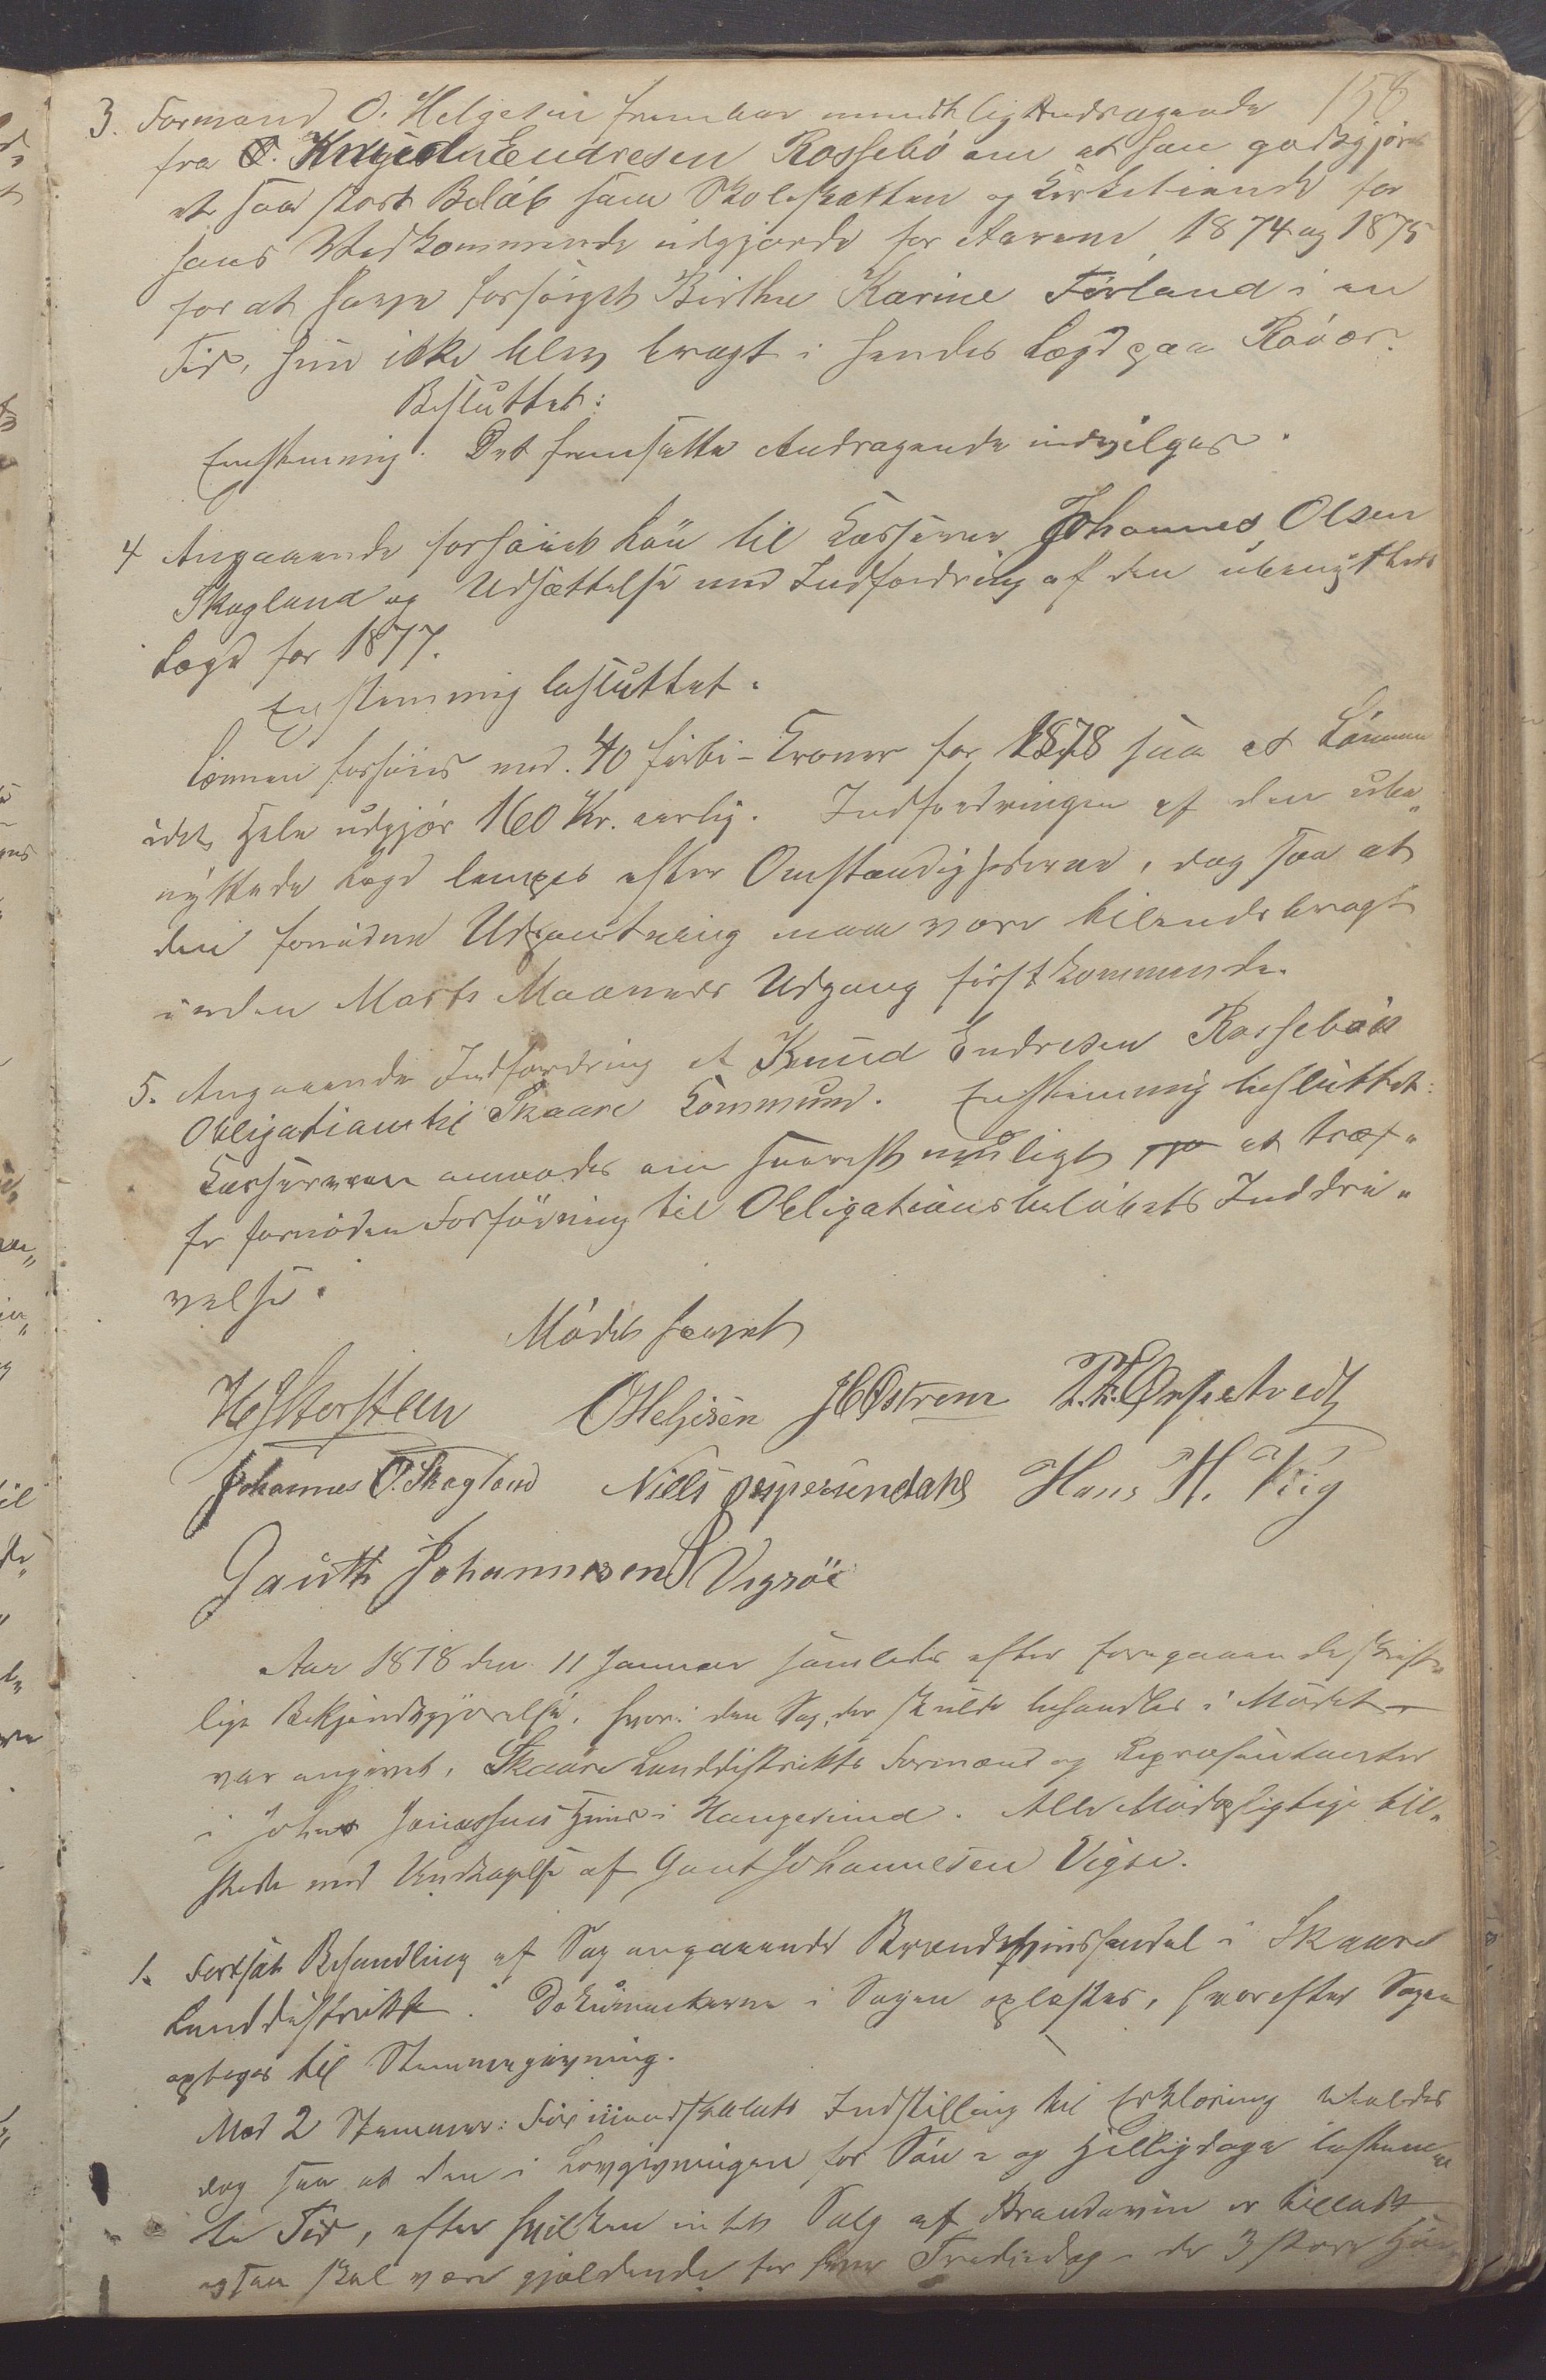 158
3. Formand O. Helgesen frembar mundtlig Andragende
fra Knud Endresen Rossebø om at han godtgjøres
et saa stort Beløb som Skoleskatten og Kirketiende for
hans Vedkommende udgjorde for Aarene 1874 og 1875
for at have forsørget Birthe Karine Førland i en
Tid, hun ikke blev bragt i hendes Lægd paa Røvær.
Besluttet:
Enstemmig. Det fremsatte Andragende indvilges.
4 Angaaende forhøiet Løn til Kasserer Johannes Olsen
Skogland og Udsættelse med Indfordring af den ubenyttede
Lægd for 1877.
Enstemmig besluttet.
Lønnen forhøies med 40 førti-Kroner for 1878 saa at Lønnen
i det Hele udgjør 160 Kr. aarlig. Indfordringen af den ube„
nyttede Lægd lempes efter Omstændighederne, dog saa at
den foruden Udpantning maa være tilendebragt
inden Marts Maaneds Udgang førstkommende.
5. Angaaende Indfordring af Knud Endresen Rossebøes
Obligation til Skaare Kommune. Enstemmig besluttet:
Kassereren anmodes om snarest muligt at træf„
fe fornøden Forføining til Obligationsbeløbets Inddri„
velse.
Mødet hævet
H Storsteen O Helgesen J C Østrem T. T. Øvpetvedt
Johannes O. Skogland Niels Jespersendahl Hans H. Viig
Gauthe Johannesen Vigsøe
Aar 1878 den 11 Januar samledes efter foregaaende skrift„
lige Bekjendtgjørelse, hvori den Sag, der skulde behandles i Mødet
var angivet, Skaare Landdistrikts Formænd og Repræsentanter
i Johan Jonassens Huus i Haugesund. Alle Mødepligtige till„
stede med Undtagelse af Gaut Johannesen Vigsø.
1. Fortsat Behandling af Sag angaaende Brændeviinshandel i Skaare
Landdistrikt. Dokumenterne i Sagen oplæstes, hvorefter Sagen
optoges til Stemmegivning.
Med 2 Stemmer: Formandskabets Indstilling til Erklæring
dog saa at den i Lovgivningen for Søn- og Helligdage bestem„
te Tid, efter hvilken intet Salg af Brændeviin er tilladt
ogsaa skal være gjældende for hver Tredjedag i de 3 store Høi„